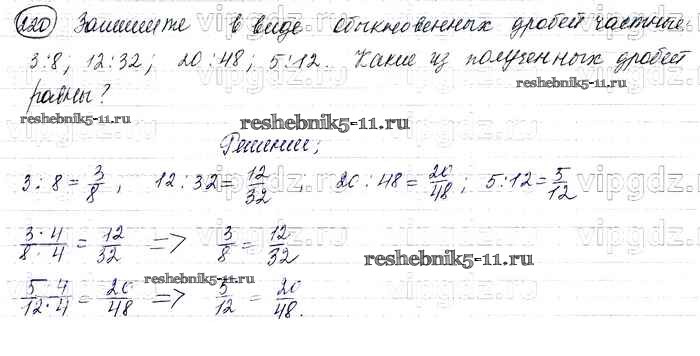 220 Запишите в виде обыкновенных дробей частные
3:8; 12:32; 20:48; 5:12. Какие из полученных дробей
равны?
reshebnik5-11.ru
reshebnik5-11.ru
Решение;
3:8 = 3/8, 12:32 = 12/32, 20:48 = 20/48; 5:12 = 5/12
3·4/8·4 = 12/32 => 3/8 = 12/32
reshebnik5-11.ru
reshebnik5-11.ru
5·4/12·4 = 20/48 => 5/12 = 20/48.
vipgdz.ru